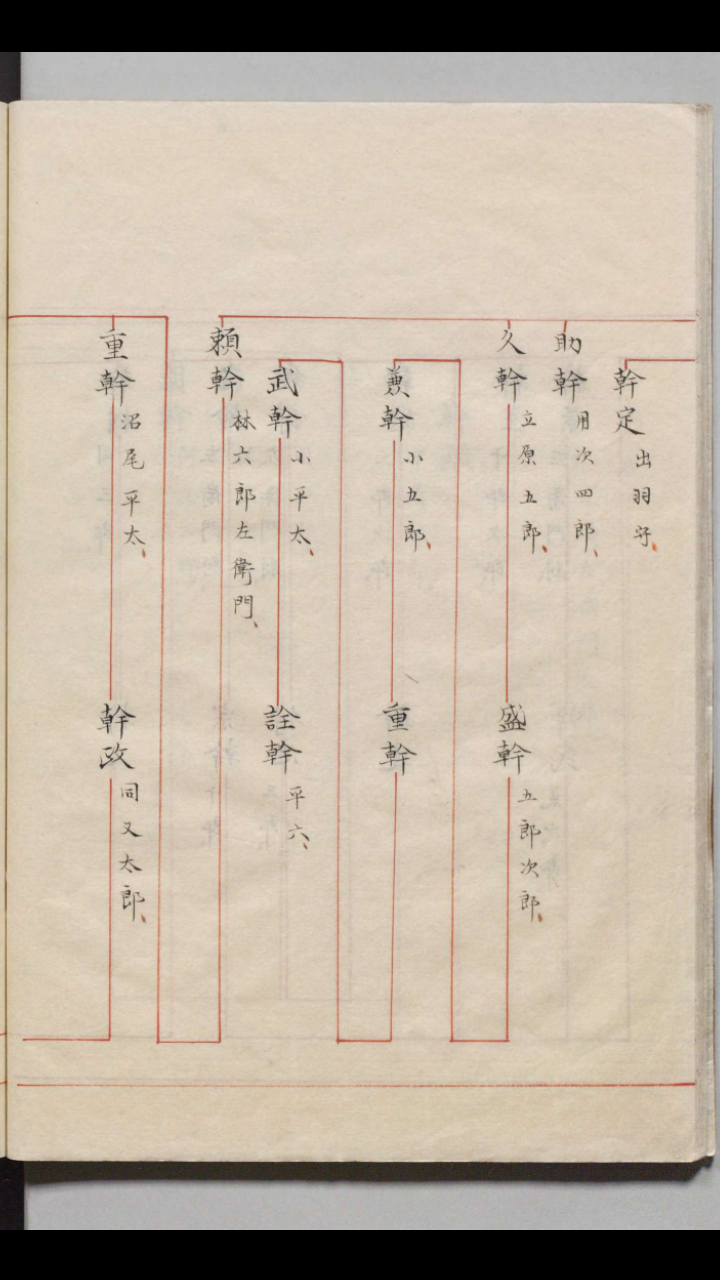 幹定 出羽守
助幹 用次四郎
久幹 立原五郎
盛幹 五郎次郎
兼幹 小五郎
重幹
武幹 小平太
詮幹 平六
頼幹 林六郎左衛門
重幹 沼尾平太
幹政 同又太郎